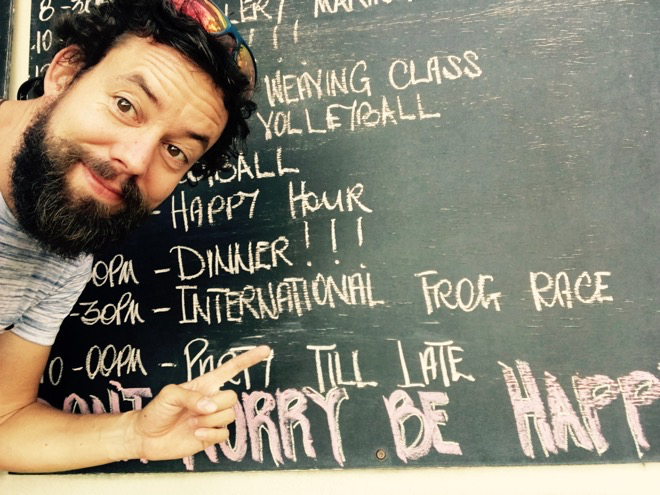 8-30
10 !!!
WEAVING CLASS
VOLLEYBALL
- HAPPY HOUR
00PM - DINNER!!!
-30PM - INTERNATIONAL FROG RACE
10-00PM - PARTY TILL LATE
WORRY BE HAPP